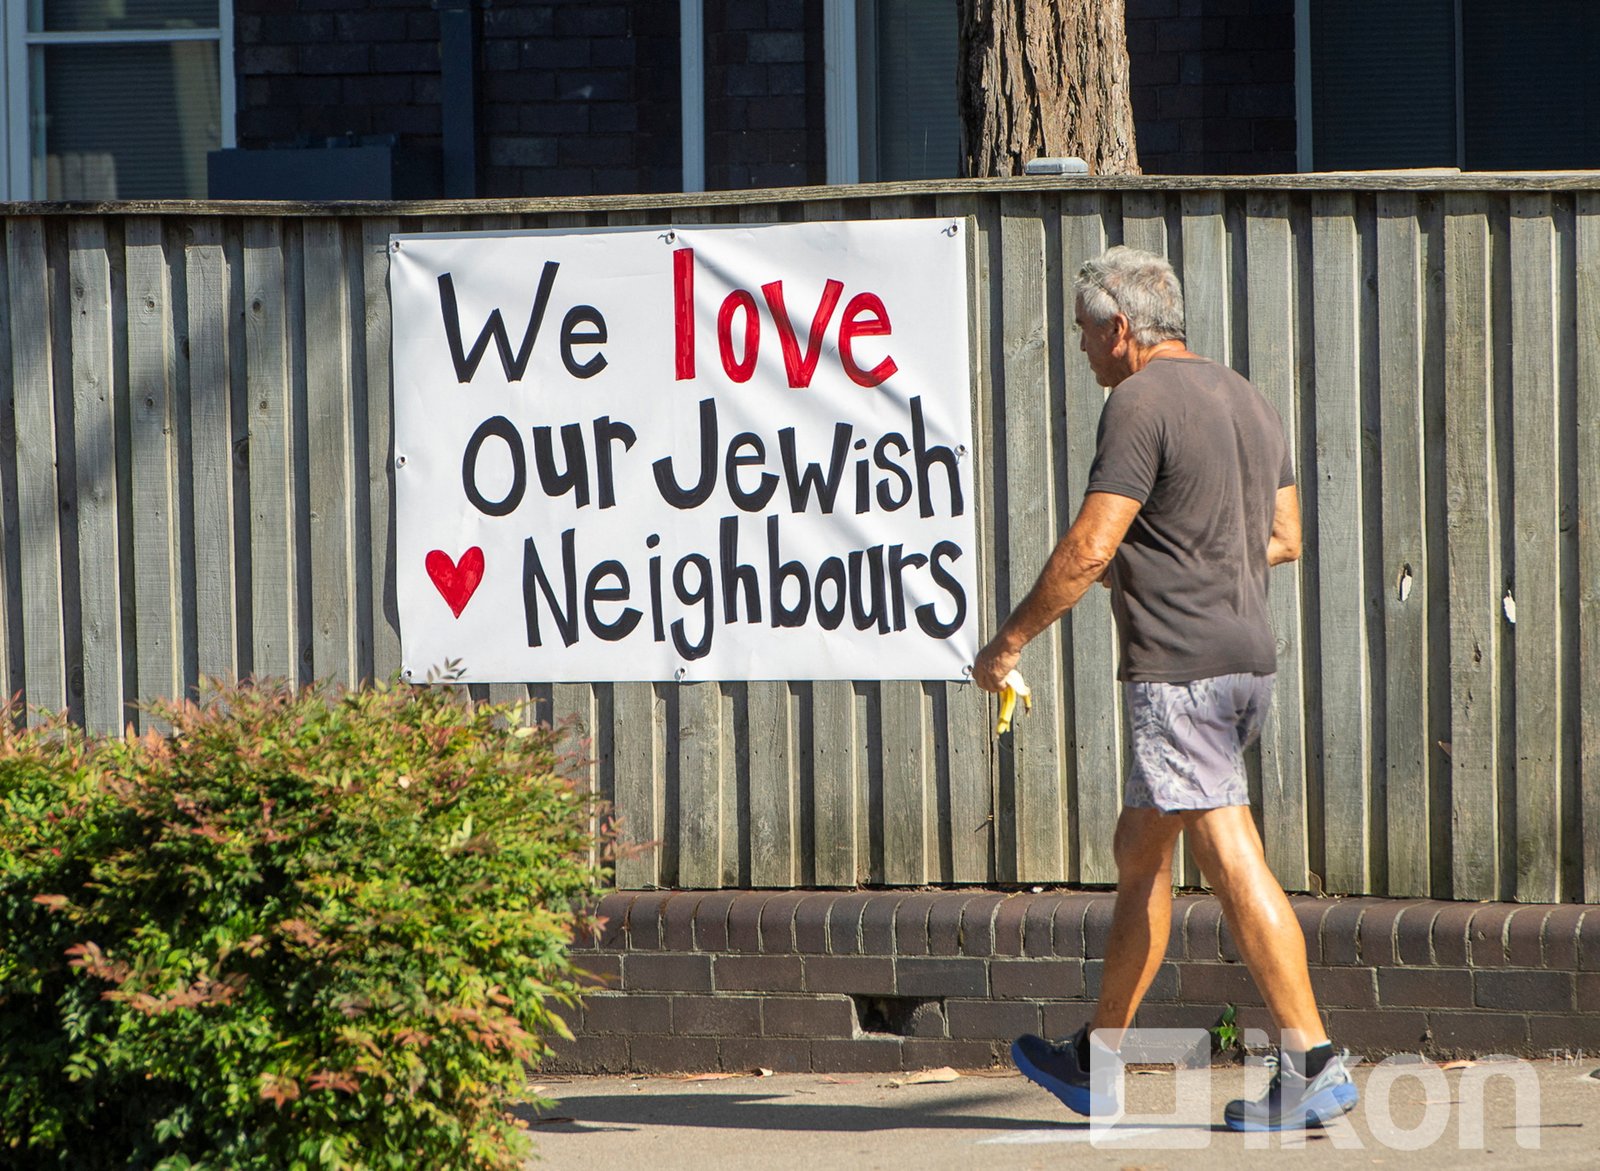 We love
our Jewish
Neighbours
ikon™